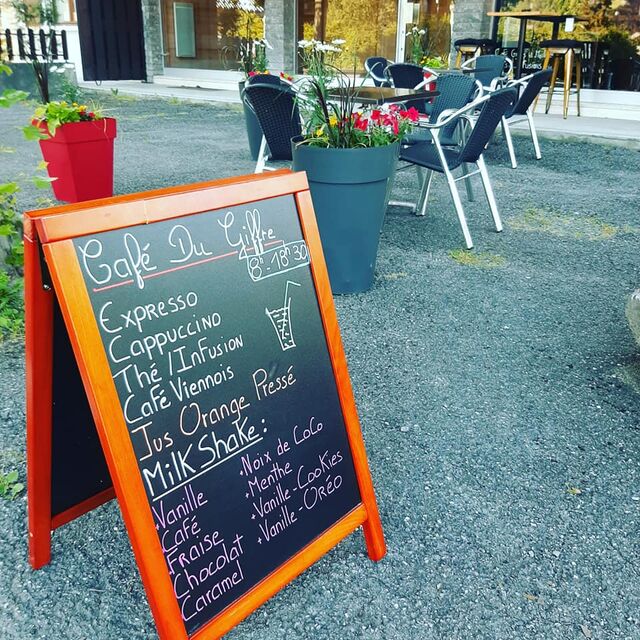 Café Du Giffre
8h-18h30
Expresso
Cappuccino
Thé / Infusion
Café Viennois
Jus Orange Pressé
Milk Shake :
Vanille
Café
Fraise
Chocolat
Caramel
Noix de Coco
Menthe
Vanille-Cookies
Vanille-Oréo